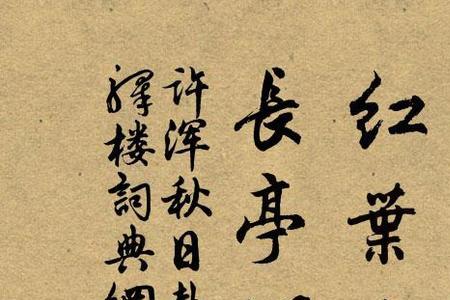 红葉
長亭
许浑秋日赴
驿楼詞典網